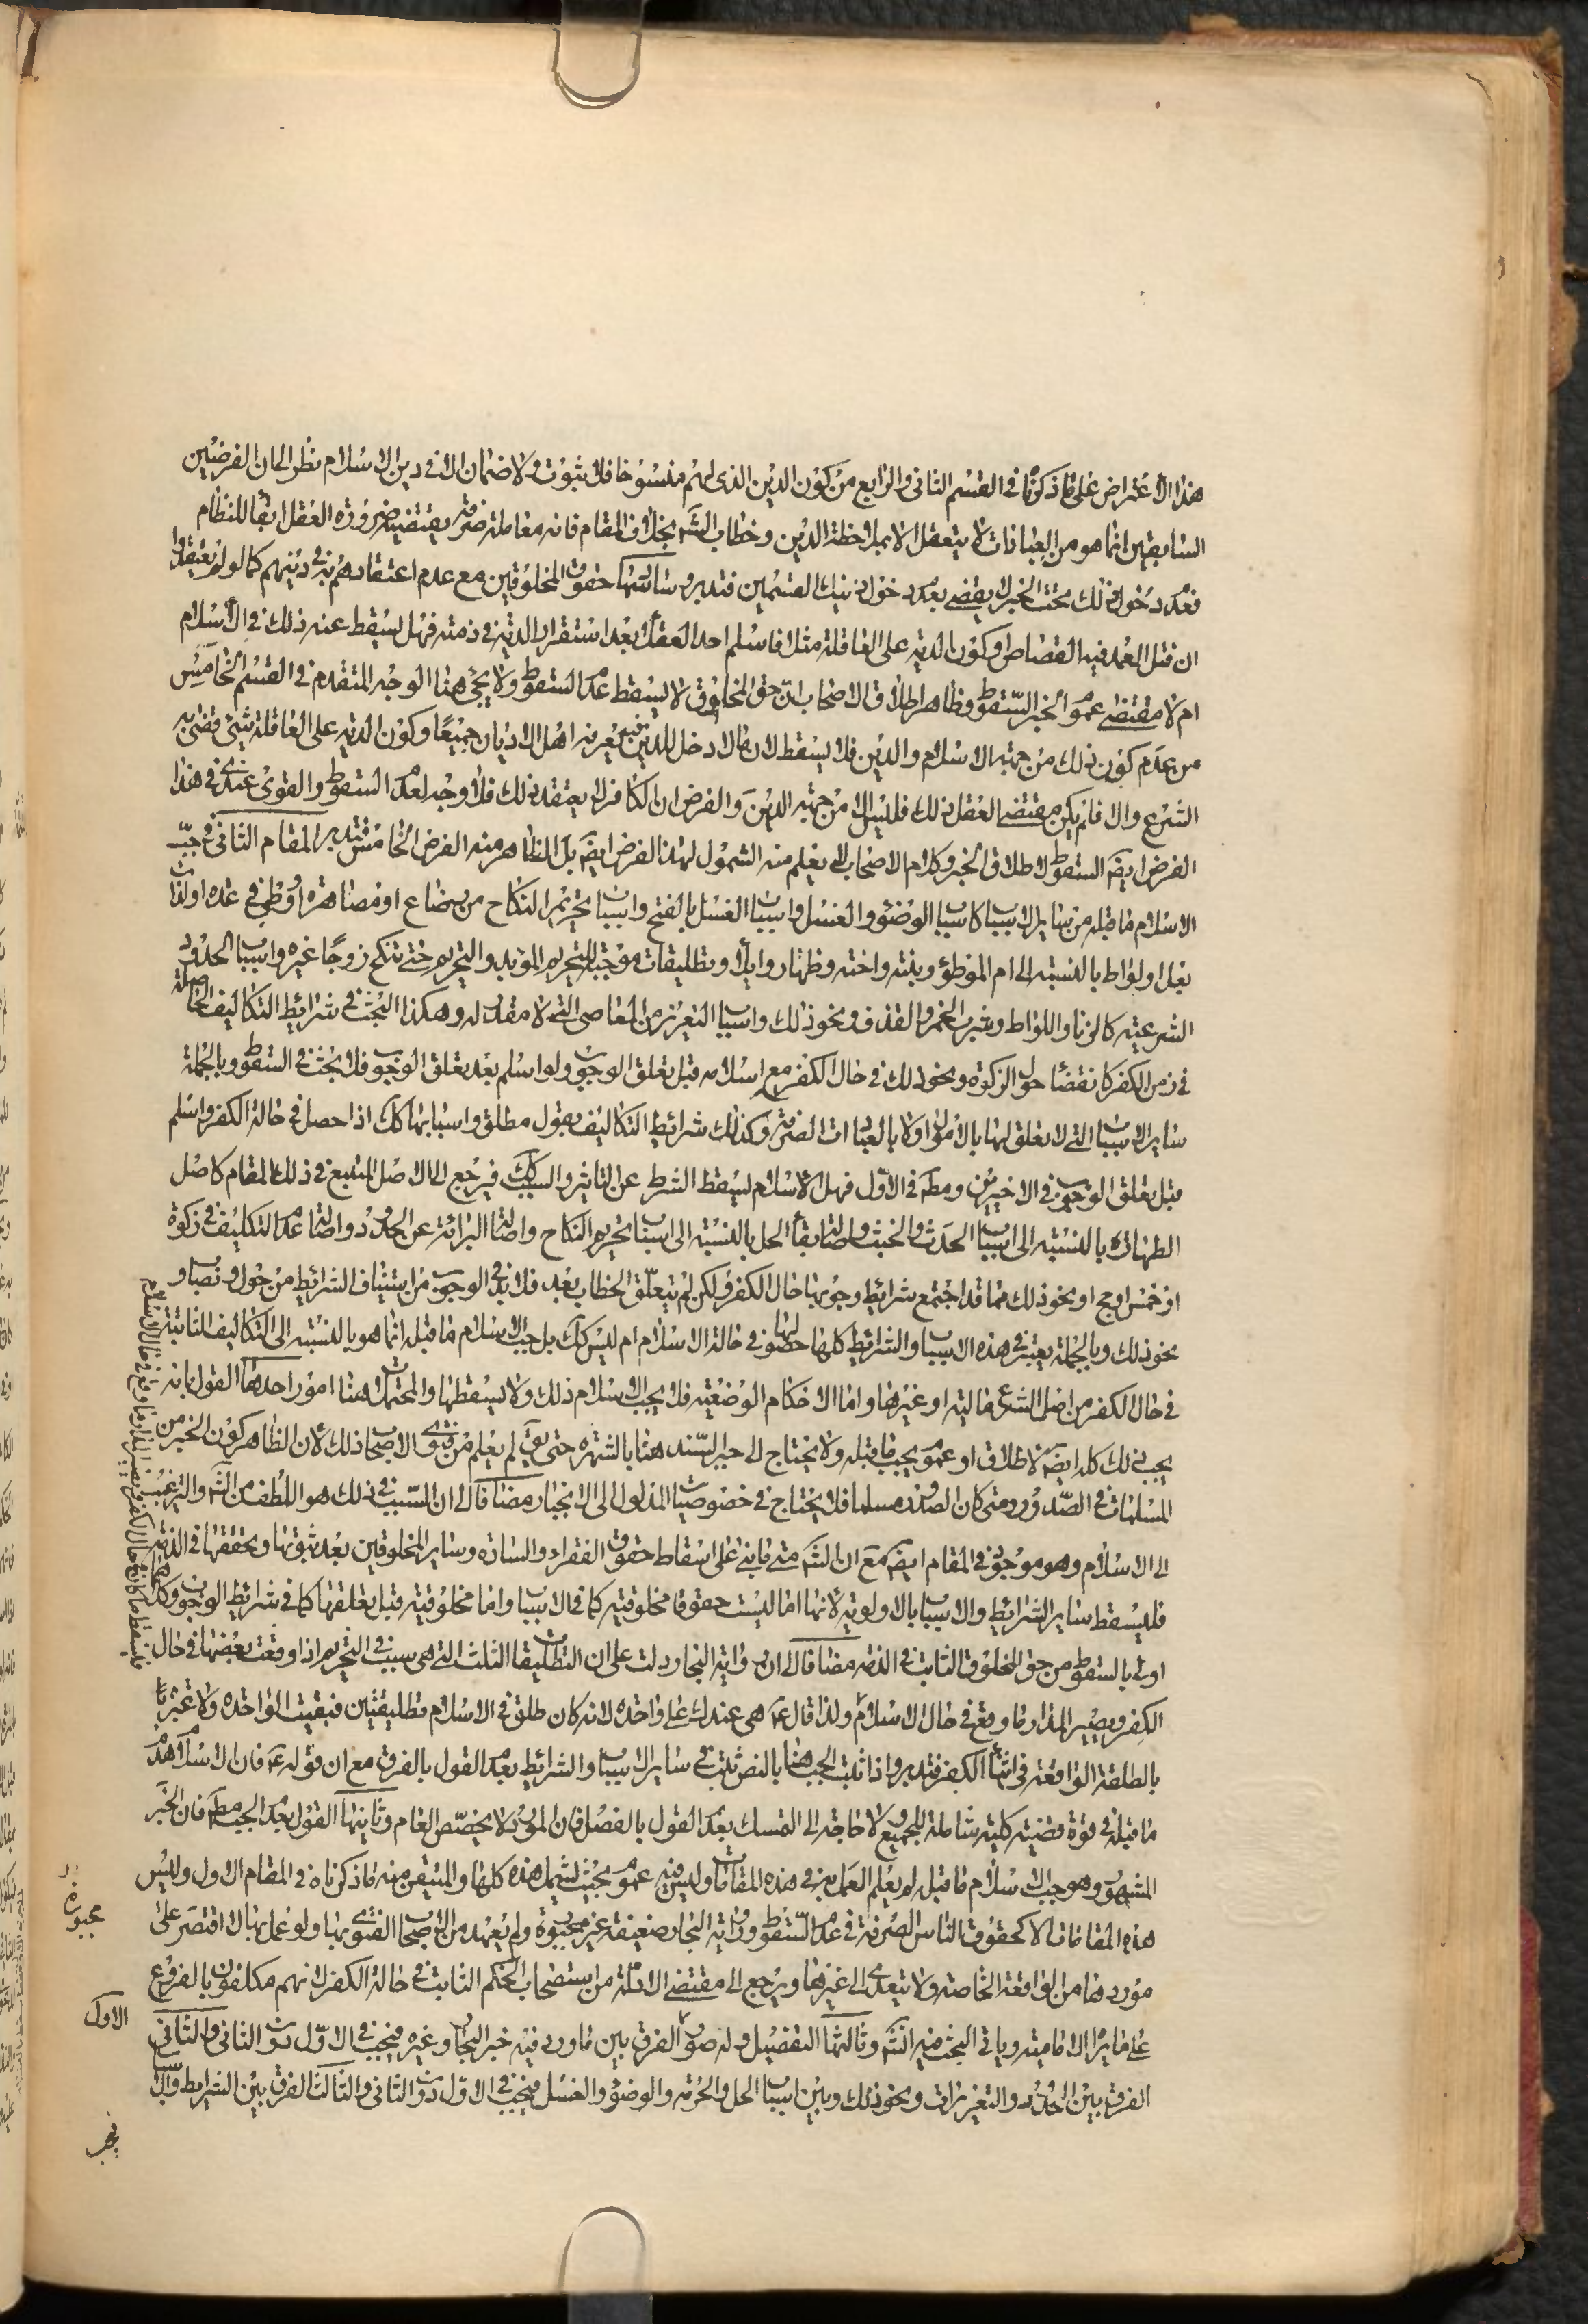 هذا الاعتراض على ما ذكرنا في القسم الثاني والرابع من كون الدين الذي لهم منسوخا فلا ثبوت ولا ضمان الا في دين الاسلام نظرا الى ان الفرضين
السابقين انما هو من العبادات لا يتعقل الا بملاحظة الدين وخطاب الشر بخلاف المقام فانه معاملة صرفة يقتضيه ضرورة العقل ابقاء للنظام
فعدم دخول ذلك تحت الخبر لا يقضي بعدم دخول ذينك القسمين فتدبر وسادسها حقوق المخلوقين مع عدم اعتقادهم به في دينهم كما لو لم يعتقدوا
ان قتل العمد فيه القصاص او كون الدية على العاقلة مثلا فاسلم احد العقلاء بعد استقرار الدية في ذمته فهل يسقط عنه ذلك في الاسلام
ام لا مقتضى عموم الخبر السقوط وظاهر اطلاق الاصحاب ان حق المخلوق لا يسقط عدم السقوط ولا يجئ هنا الوجه المتقدم في القسم الخامس
من عدم كون ذلك من جهة الاسلام والدين فلا يسقط لان ما لا دخل للدين فيه يعرفه اهل الاديان جميعا وكون الدية على العاقلة شئ قضى به
الشرع والا فلم يكن مقتضى العقل ذلك فليس الا من جهة الدين والفرض ان الكافر لا يعتقد ذلك فلا وجه لعدم السقوط والقوى عندي في هذا
الفرض ايضا السقوط لاطلاق الخبر وكلام الاصحاب لا يعلم منه الشمول لهذا الفرض ايضا بل الظاهر منه الفرض الخامس فتدبر المقام الثاني في جبّ
الاسلام ما قبله من ساير الاسباب كاسباب الوضوء والغسل واسباب الغسل بالفتح واسباب تحريم النكاح من رضاع او مصاهرة او وطي في عدة او لذات
بعل او لواط بالنسبة الى ام الموطوء وبنته واخته وظهار وايلاء وتطليقات موجبة للتحريم المؤبد والتحريم حتى تنكح زوجا غيره واسباب الحدود
الشرعية كالزنا واللواط وشرب الخمر والقذف ونحو ذلك واسباب التعزير من المعاصي التي لا مقدر له وهكذا البحث في شرائط التكاليف الحاصلة
في زمن الكفر كانقضاء حول الزكوة ونحو ذلك في حال الكفر مع اسلامه قبل تعلق الوجوب ولو اسلم بعد تعلق الوجوب فلا بحث في السقوط وبالجملة
ساير الاسباب التي لا تعلق لها بالاموال ولا بالعبادات الصرفة وكذلك شرائط التكاليف بقول مطلق واسبابها كك اذا حصل في حالة الكفر واسلم
قبل تعلق الوجوب في الاخيرين ومطلقا في الاول فهل الاسلام يسقط الشرط عن التاثير والسبب كك فيرجع الى الاصل المتبع في ذلك المقام كاصل
الطهارة بالنسبة الى اسباب الحدث والخبث واصالة بقاء الحل بالنسبة الى اسباب تحريم النكاح واصالة البرائة عن الحدود واصالة عدم التكليف في زكوة
او خمس او حج او نحو ذلك مما قد اجتمع شرائط وجوبها حال الكفر ولكن لم يتعلق الخطاب بعد فلا بد في الوجوب من استيناف الشرائط من حول ونصاب و
نحو ذلك وبالجملة يعتبر في هذه الاسباب والشرائط كلها حصولها في حالة الاسلام ام ليس كك بل جب الاسلام ما قبله انما هو بالنسبة الى التكاليف الثابتة
في حال الكفر من اصل الشرع مالية او غيرها واما الاحكام الوضعية فلا يجب الاسلام ذلك ولا يسقطها والمحتملات هنا امور احدها القول بانه
يجب ذلك كله ايضا لاطلاق او عموم يجب ما قبله ولا يحتاج الى جبر السند هنا بالشهرة حتى يق لم يعلم من فتوى الاصحاب ذلك لان الظاهر كون الخبر من
المسلمات في الصدور ومتى كان الصدور مسلما فلا يحتاج في خصوصيات المدلول الى الانجبار مضافا الى ان السبب في ذلك هو اللطف من الشر والترغيب
الى الاسلام وهو موجود في المقام ايضا مع ان الشر متى ما بنى على اسقاط حقوق الفقراء والسادة وساير المخلوقين بعد ثبوتها وتحققها في الذمة
فليسقط ساير الشرائط والاسباب بالاولوية لانها اما ليست حقوقا مخلوقية كما في الاسباب واما مخلوقية قبل تعلقها كما في شرائط الوجوب وكلاهما
اولى بالسقوط من حق المخلوق الثابت في الذمة مضافا الى ان رواية النجار دلت على ان التطليقات الثلث التي هي سبب في التحريم اذا وقعت بعضها في حال
الكفر ويصير المدار ما وقع في حال الاسلام ولذا قال ع هي عندك على واحدة لانه كان طلق في الاسلام تطليقتين فبقيت الواحدة ولا عبرة
بالطلقة الواقعة في اثناء الكفر فتدبر واذا ثبت الجب هنا بالنص ثبت في ساير الاسباب والشرائط بعدم القول بالفرق مع ان قوله ع فان الاسلام هدم
ما قبله في قوة قضية كلية شاملة للجميع ولا حاجة الى التمسك بعدم القول بالفصل فان المورد لا يخصص العام وثانيها القول بعدم الجب مطلقا فان الخبر
المشهور وهو جب الاسلام ما قبله لم يعلم العمل به في هذه المقامات وليس فيه عموم بحيث يشمل هذه كلها والمتيقن منه ما ذكرناه في المقام الاول وليس
هذه المقامات الا كحقوق الناس الصرفة في عدم السقوط ورواية النجار ضعيفة غير مجبورة ولم يعهد من الاصحاب الفتوى بها ولو عمل بها لاقتصر على
موردها من الواقعة الخاصة ولا تتعدى الى غيرها ويرجع الى مقتضى الادلة من استصحاب الحكم الثابت في حالة الكفر لانهم مكلفون بالفروع
على ما يراه الامامية وياتي البحث فيه انش وثالثها التفصيل وله صور الاول الفرق بين ما ورد فيه خبر النجار وغيره فيجب في الاول دون الثاني والثاني
الفرق بين الحدود والتعزيرات ونحو ذلك وبين اسباب الحل والحرمة والوضوء والغسل فيجب في الاول دون الثاني والثالث الفرق بين الشرايط والاسباب
مجبورة
الاول